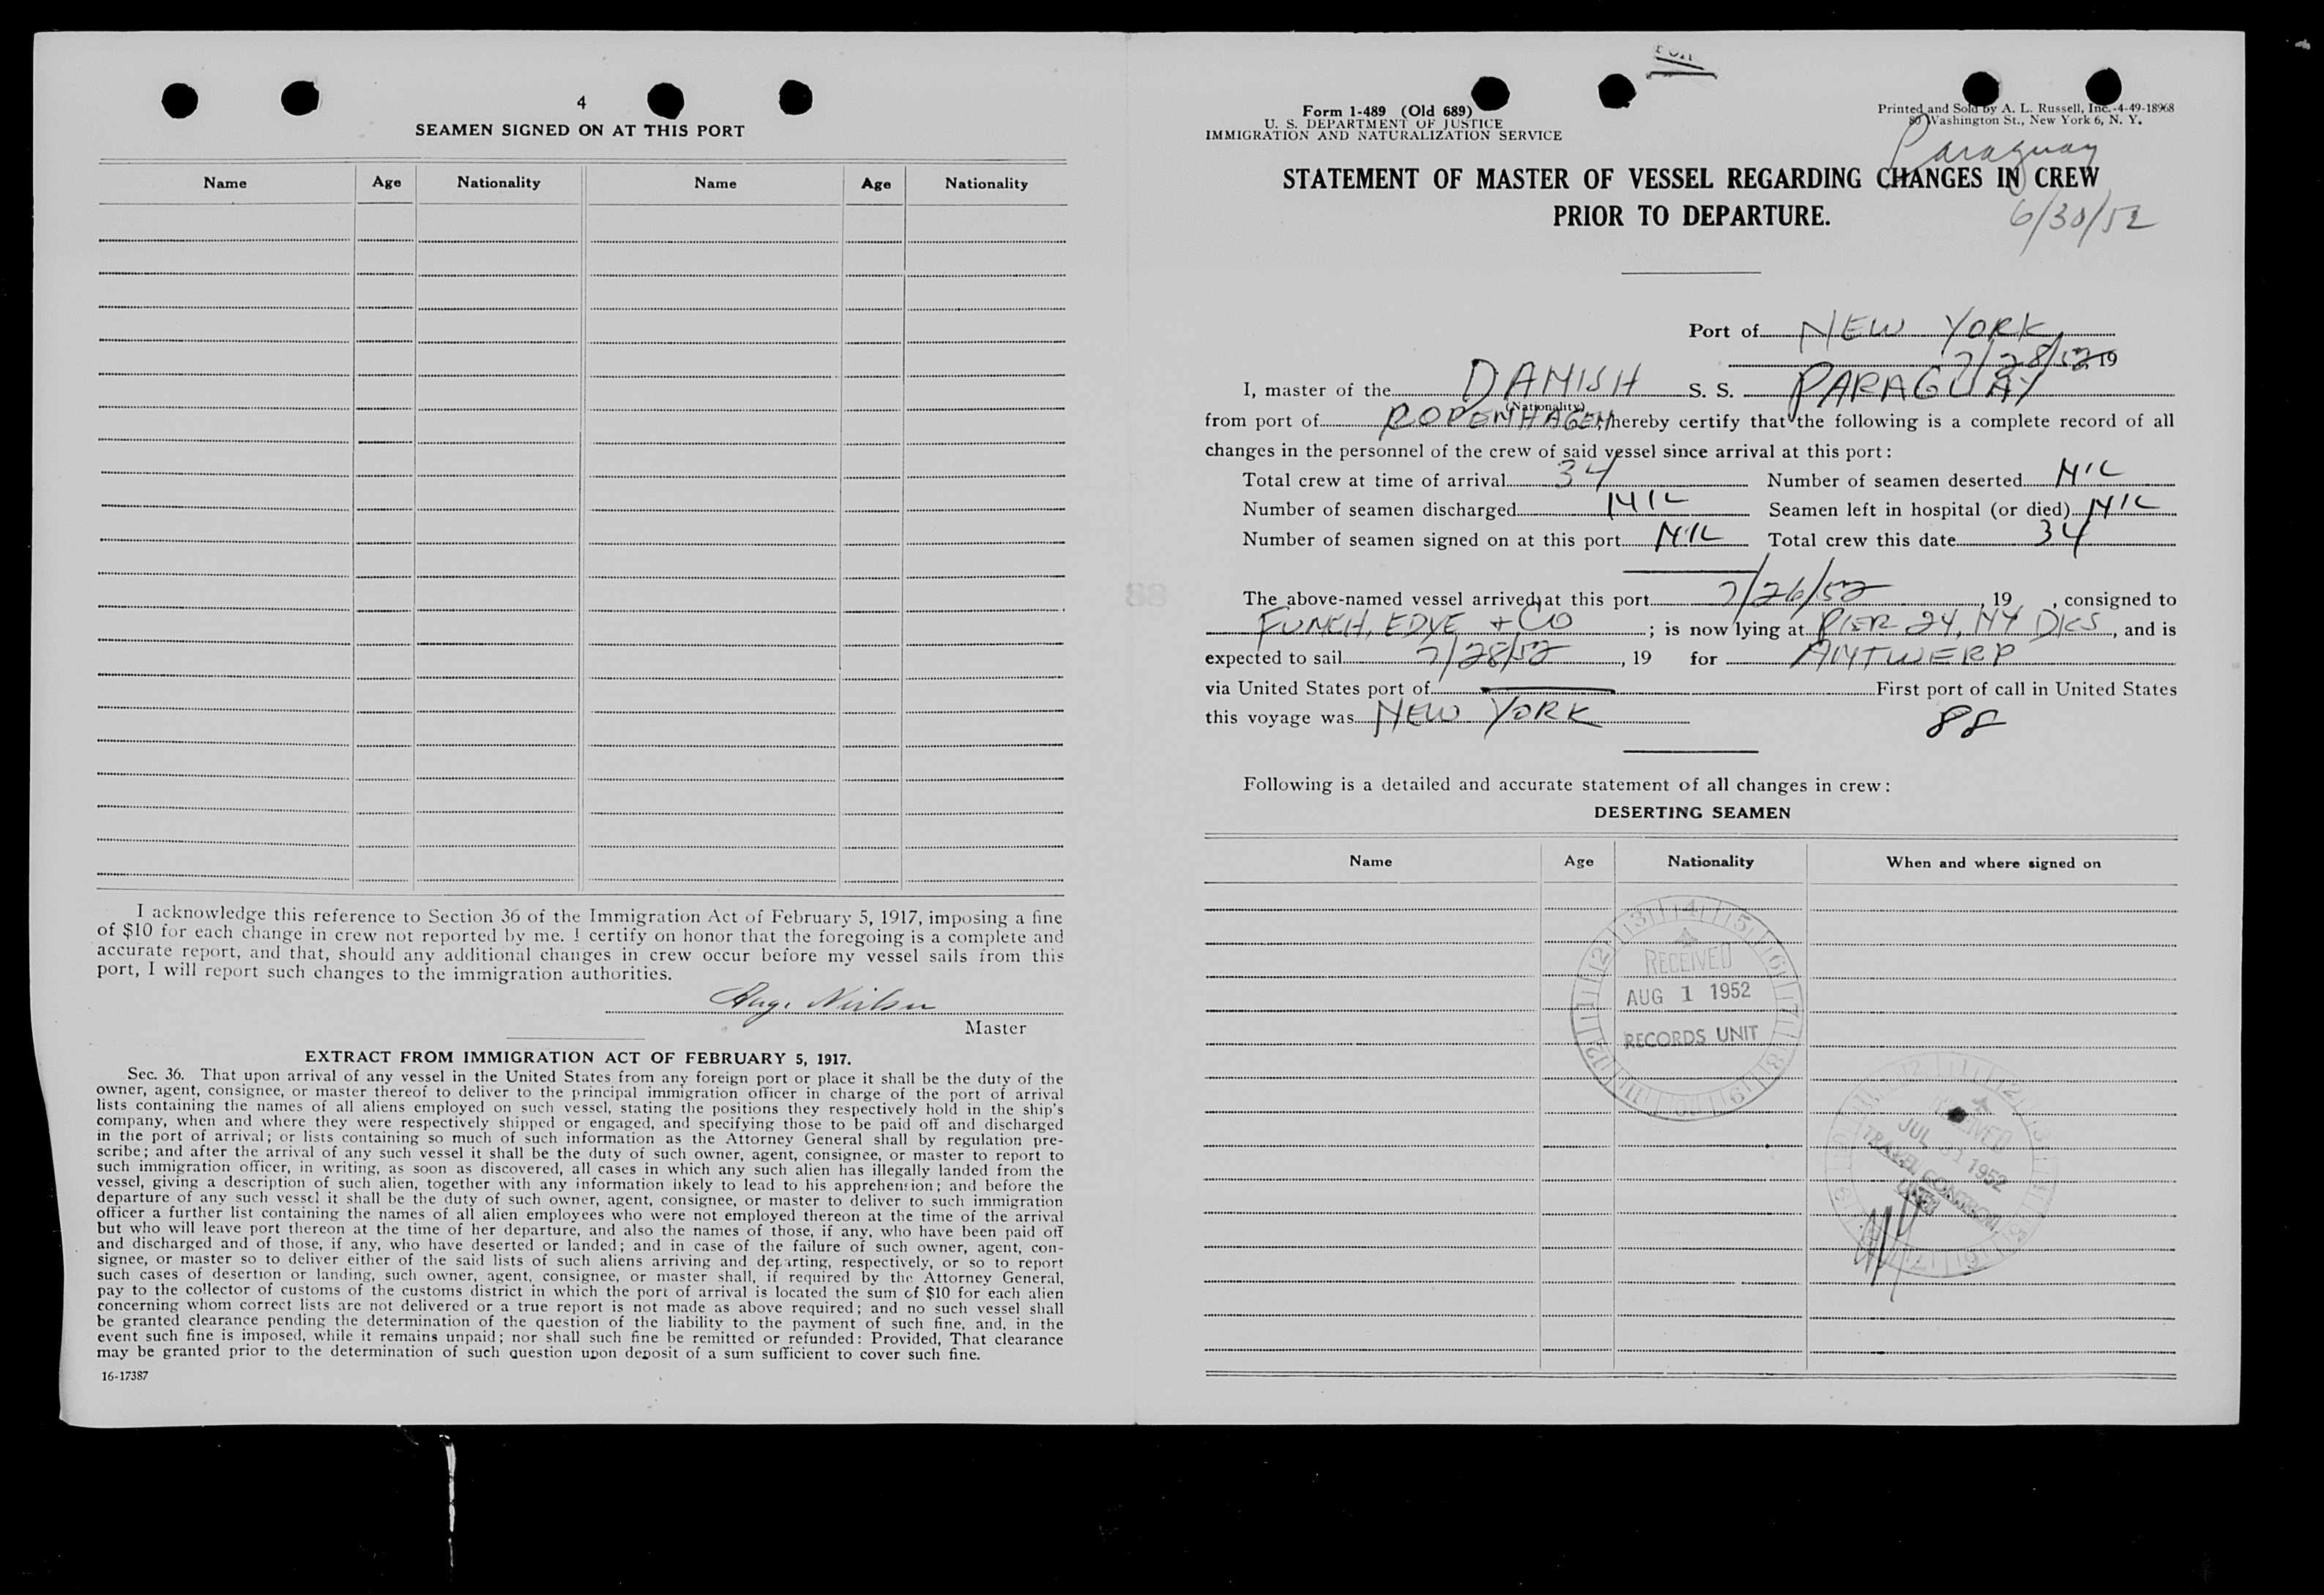 4
SEAMEN SIGNED ON AT THIS PORT
Name Age Nationality Name Age Nationality
I acknowledge this reference to Section 36 of the Immigration Act of February 5, 1917, imposing a fine
of $10 for each change in crew not reported by me. I certify on honor that the foregoing is a complete and
accurate report, and that, should any additional changes in crew occur before my vessel sails from this
port, I will report such changes to the immigration authorities.
Master
EXTRACT FROM IMMIGRATION ACT OF FEBRUARY 5, 1917.
Sec. 36. That upon arrival of any vessel in the United States from any foreign port or place it shall be the duty of the
owner, agent, consignee, or master thereof to deliver to the principal immigration officer in charge of the port of arrival
lists containing the names of all aliens employed on such vessel, stating the positions they respectively hold in the ship's
company, when and where they were respectively shipped or engaged, and specifying those to be paid off and discharged
in the port of arrival; or lists containing so much of such information as the Attorney General shall by regulation pre-
scribe; and after the arrival of any such vessel it shall be the duty of such owner, agent, consignee, or master to report to
such immigration officer, in writing, as soon as discovered, all cases in which any such alien has illegally landed from the
vessel, giving a description of such alien, together with any information likely to lead to his apprehension; and before the
departure of any such vessel it shall be the duty of such owner, agent, consignee, or master to deliver to such immigration
officer a further list containing the names of all alien employees who were not employed thereon at the time of the arrival
but who will leave port thereon at the time of her departure, and also the names of those, if any, who have been paid off
and discharged and of those, if any, who have deserted or landed; and in case of the failure of such owner, agent, con-
signee, or master so to deliver either of the said lists of such aliens arriving and departing, respectively, or so to report
such cases of desertion or landing, such owner, agent, consignee, or master shall, if required by the Attorney General,
pay to the collector of customs of the customs district in which the port of arrival is located the sum of $10 for each alien
concerning whom correct lists are not delivered or a true report is not made as above required; and no such vessel shall
be granted clearance pending the determination of the question of the liability to the payment of such fine, and, in the
event such fine is imposed, while it remains unpaid; nor shall such fine be remitted or refunded: Provided, That clearance
may be granted prior to the determination of such question upon deposit of a sum sufficient to cover such fine.
16-17387
Form 1-489 (Old 689)
U. S. DEPARTMENT OF JUSTICE
IMMIGRATION AND NATURALIZATION SERVICE
Printed and Sold by A. L. Russell, Inc.-4-49-18968
80 Washington St., New York 6, N. Y.
Paraguay
STATEMENT OF MASTER OF VESSEL REGARDING CHANGES IN CREW
PRIOR TO DEPARTURE.
6/30/52
Port of NEW YORK
7/28/52 19
I, master of the DANISH S. S. PARAGUAY
(Nationality)
from port of KOPENHAGEN, hereby certify that the following is a complete record of all
changes in the personnel of the crew of said vessel since arrival at this port:
Total crew at time of arrival 34 Number of seamen deserted NIL
Number of seamen discharged NIL Seamen left in hospital (or died) NIL
Number of seamen signed on at this port NIL Total crew this date 34
The above-named vessel arrived at this port 7/26/52, 19 , consigned to
FUNCH, EDYE + CO; is now lying at PIER 24, NY DKS, and is
expected to sail 7/28/52, 19 for ANTWERP
via United States port of First port of call in United States
this voyage was NEW YORK
88
Following is a detailed and accurate statement of all changes in crew:
DESERTING SEAMEN
Name Age Nationality When and where signed on
RECEIVED
AUG 1 1952
RECORDS UNIT
RECEIVED
JUL 31 1952
TRAVEL CONTROL
UNIT